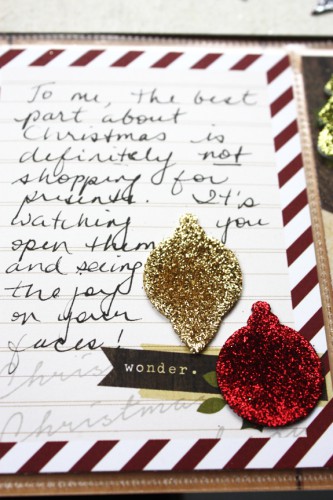 To me, the best
part about
Christmas is
definitely not
shopping for
presents. It's
watching you
open them
and seeing
the joy
on your
faces!
Chris
wonder.
Christma